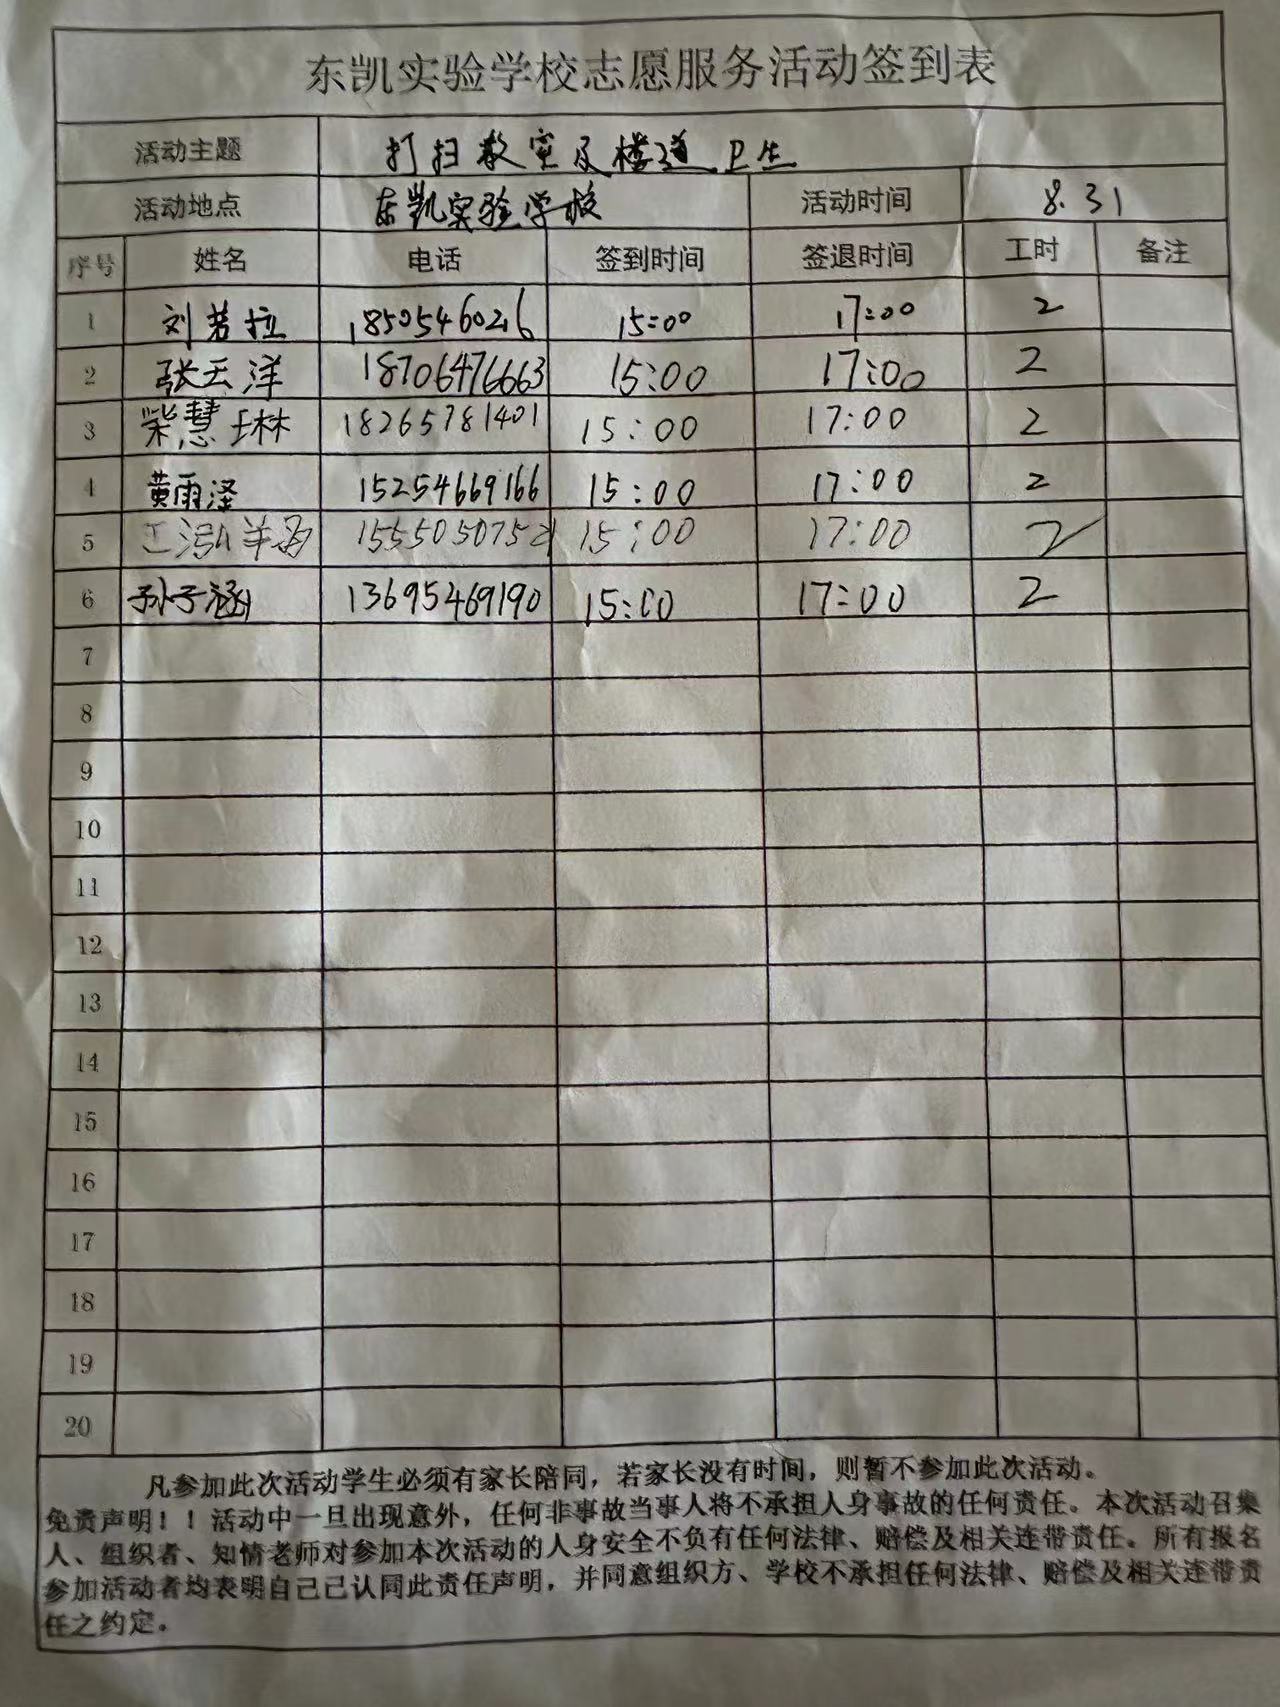 东凯实验学校志愿服务活动签到表
活动主题 打扫教室及楼道卫生
活动地点 东凯实验学校 活动时间 8.31
序号 姓名 电话 签到时间 签退时间 工时 备注
1 刘若拉 18505460216 15:00 17:00 2
2 张天洋 18706476663 15:00 17:00 2
3 柴慧琳 18265781401 15:00 17:00 2
4 黄雨泽 15254669166 15:00 17:00 2
5 15:00 17:00 2
6 孙子涵 13695469190 15:00 17:00 2
7
8
9
10
11
12
13
14
15
16
17
18
19
20
凡参加此次活动学生必须有家长陪同，若家长没有时间，则暂不参加此次活动。
免责声明！！活动中一旦出现意外，任何非事故当事人将不承担人身事故的任何责任。本次活动召集
人、组织者、知情老师对参加本次活动的人身安全不负有任何法律、赔偿及相关连带责任。所有报名
参加活动者均表明自己已认同此责任声明，并同意组织方、学校不承担任何法律、赔偿及相关连带责
任之约定。